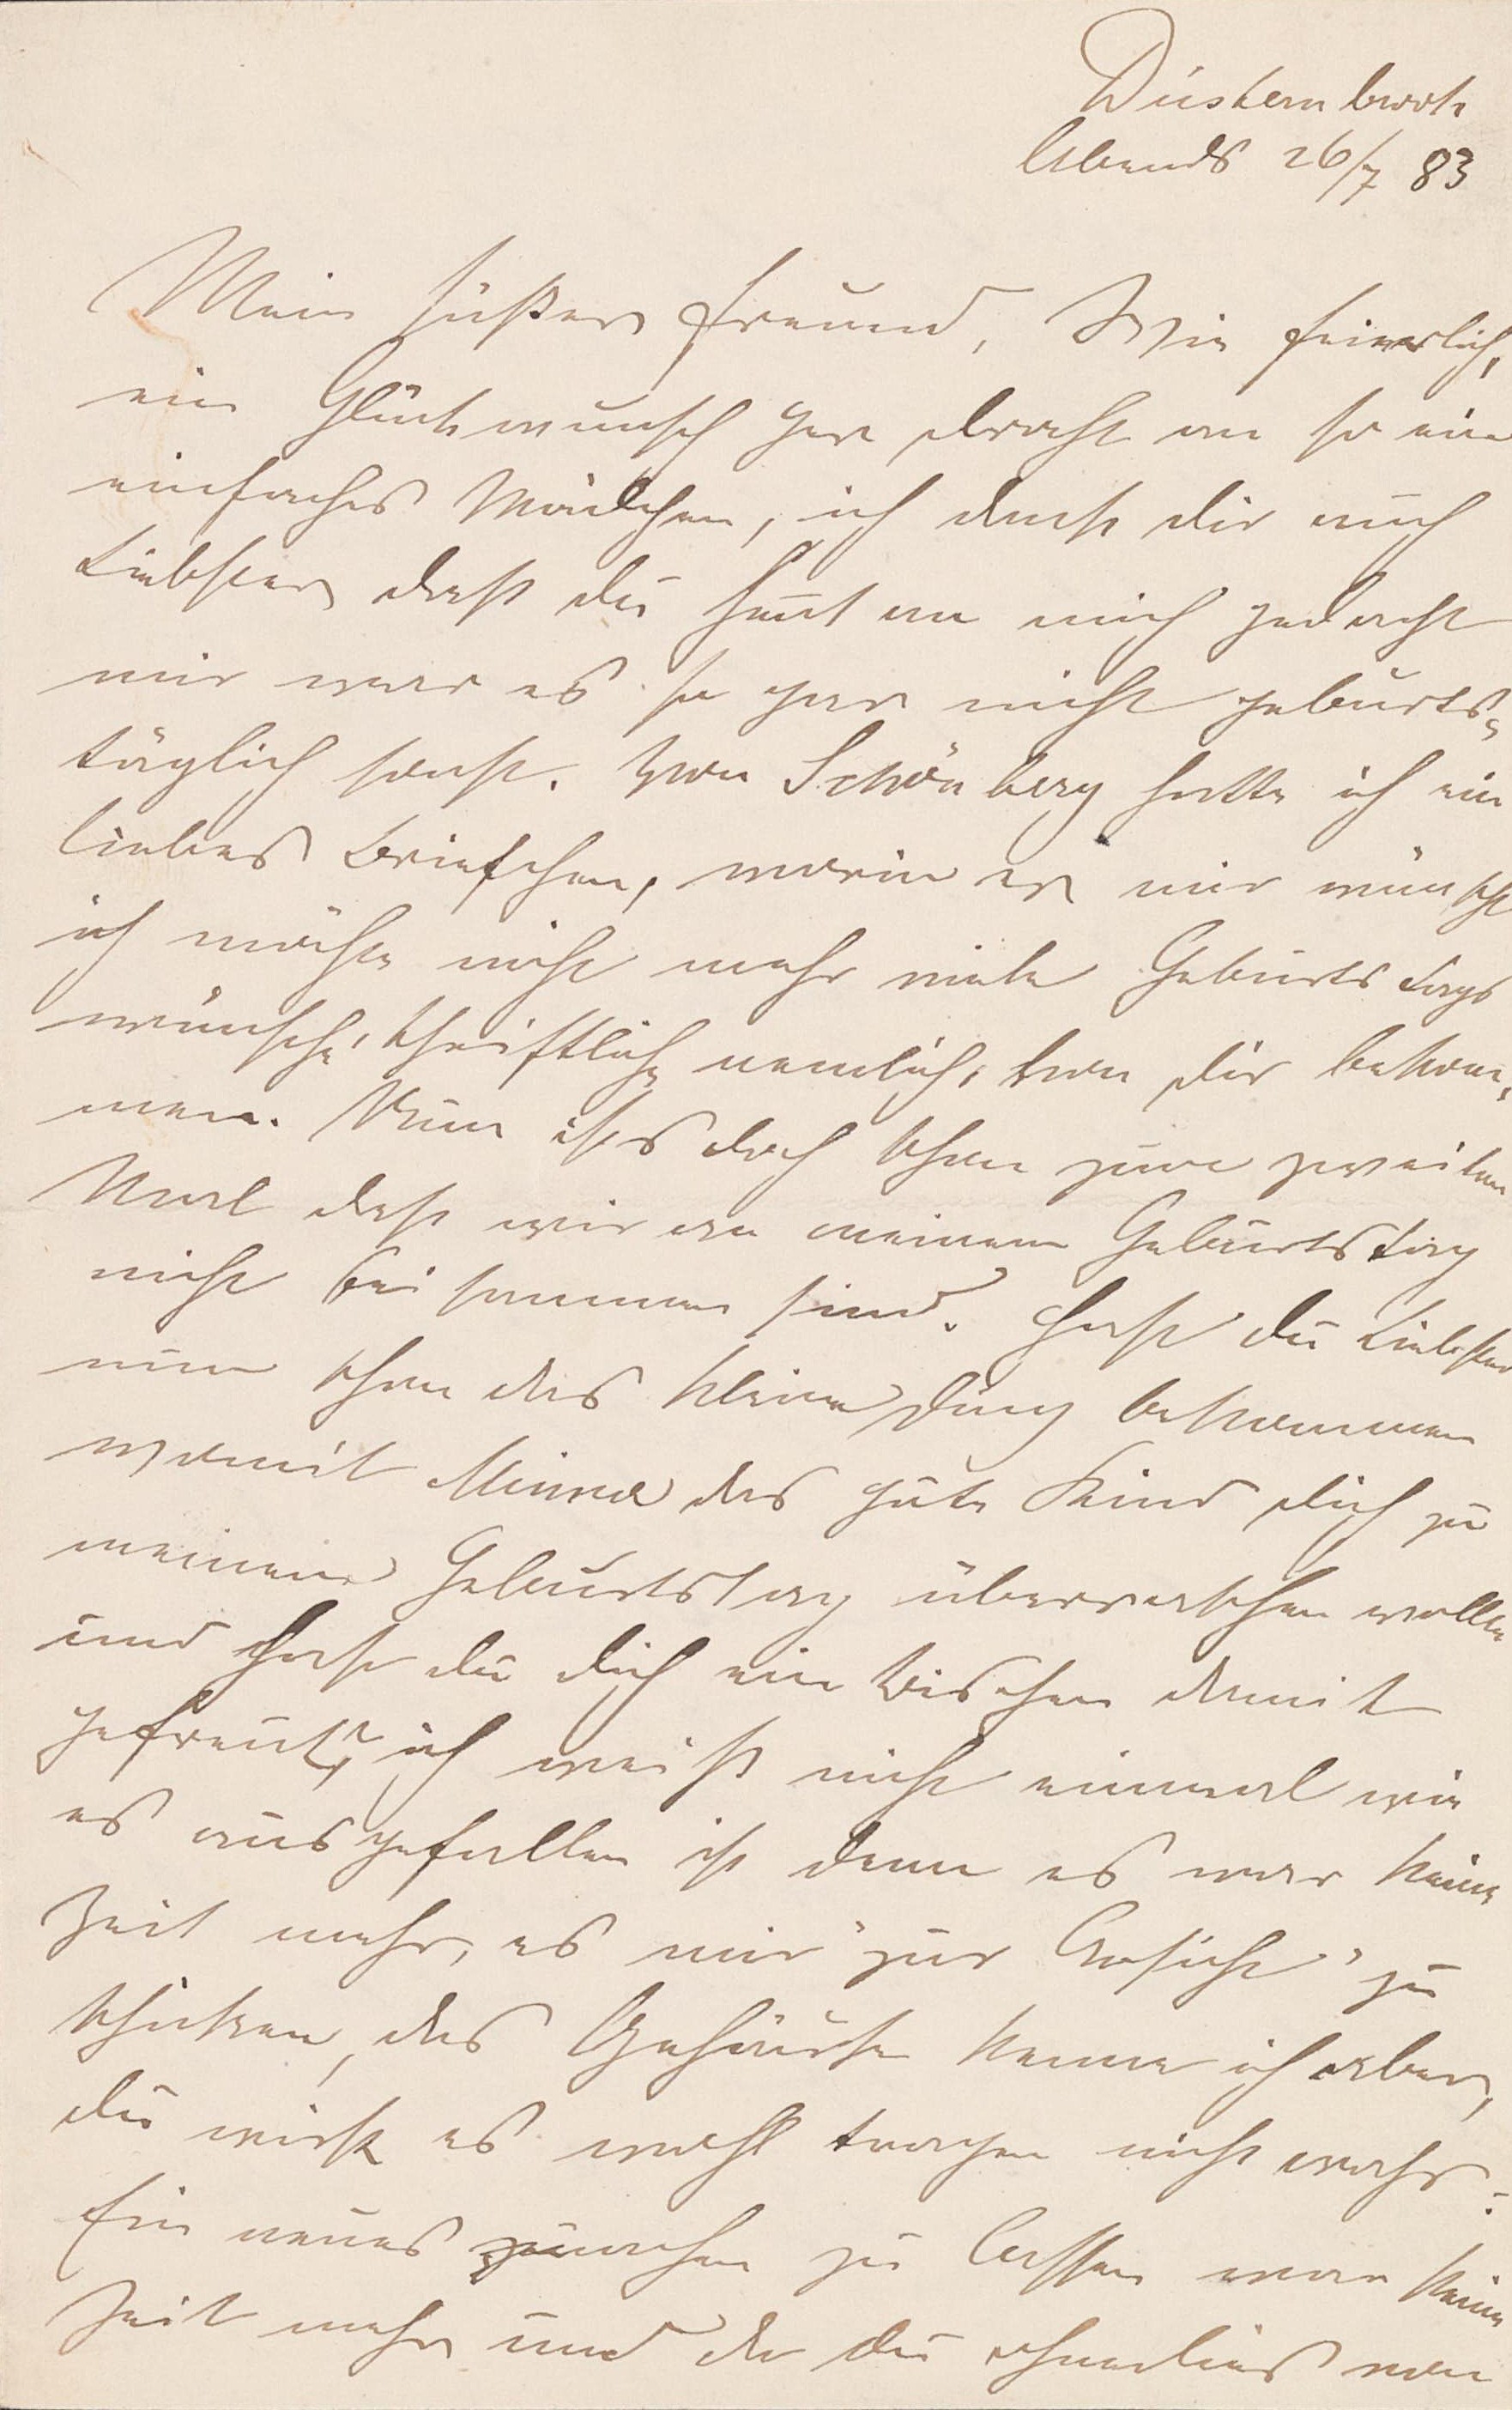 Düsternbrook
Abends 26/7 83
Mein süßer Freund, Wie feierlich,
ein Glückwunsch per Draht an so ein
einfaches Mädchen, ich dank dir auch
Liebster daß du heut an mich gedacht
mir war es so gar nicht geburts-
täglich sonst. Von Schönberg hatte ich ein
liebes Briefchen, worin er mir wünscht
ich möchte nicht mehr viele Geburtstags
wünsche, schriftliche nemlich, von dir bekom-
men. Nun ists doch schon zum zweiten
Mal daß wir an meinem Geburtstag
nicht beisammen sind. Hast du Liebster
nun schon das kleine Ding bekommen
womit Minna das gute Kind dich zu
meinem Geburtstag überraschen wollte
und hast du dich ein bischen damit
gefreut?, ich weiß nicht einmal wie
es ausgefallen ist denn es war keine
Zeit mehr, es mir "zur Ansicht" zu
schicken, das Gehäuse kenne ich aber,
du wirst es wohl tragen nicht wahr?
Ein neues machen zu lassen war keine
Zeit mehr und da du ohnedies von